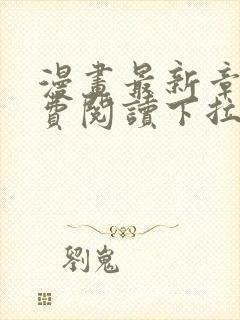 漫畫最新章
費閱讀下拉
劉嵬